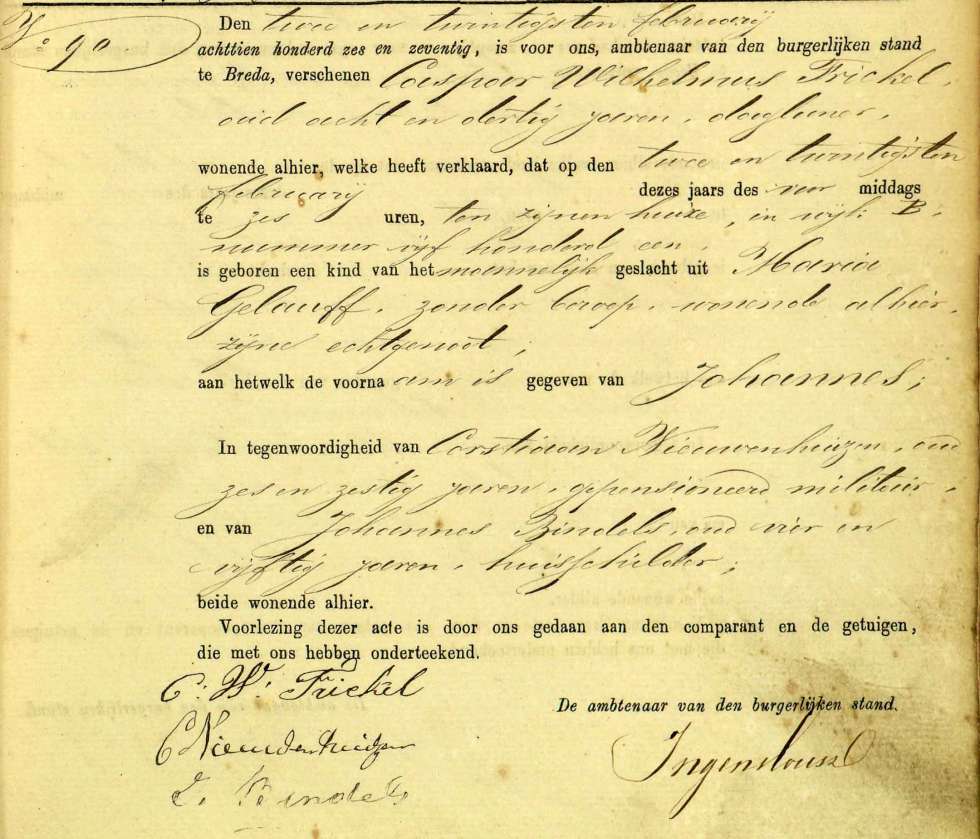 No 90.
Den twee en twintigsten februarij
achttien honderd zes en zeventig, is voor ons, ambtenaar van den burgerlijken stand
te Breda, verschenen Caspar Wilhelmus Frickel,
oud acht en dertig jaren, daglooner,
wonende alhier, welke heeft verklaard, dat op den twee en twintigsten
februarij dezes jaars des voor middags
te zes uren, ten zijnen huize, in wijk B,
nummer vijf honderd een,
is geboren een kind van het mannelijk geslacht uit Maria
Gelauff, zonder beroep, wonende alhier,
zijne echtgenoot,
aan hetwelk de voorna am is gegeven van Johannes;
In tegenwoordigheid van Corstiaan Nieuwenhuizen, oud
zes en zestig jaren, gepensioneerd militair,
en van Johannes Bindels, oud vier en
vijftig jaren, huisschilder;
beide wonende alhier.
Voorlezing dezer acte is door ons gedaan aan den comparant en de getuigen,
die met ons hebben onderteekend.
C. W. Frickel
De ambtenaar van den burgerlijken stand.
C Nieuwenhuizen
Ingenhousz
J. Bindels